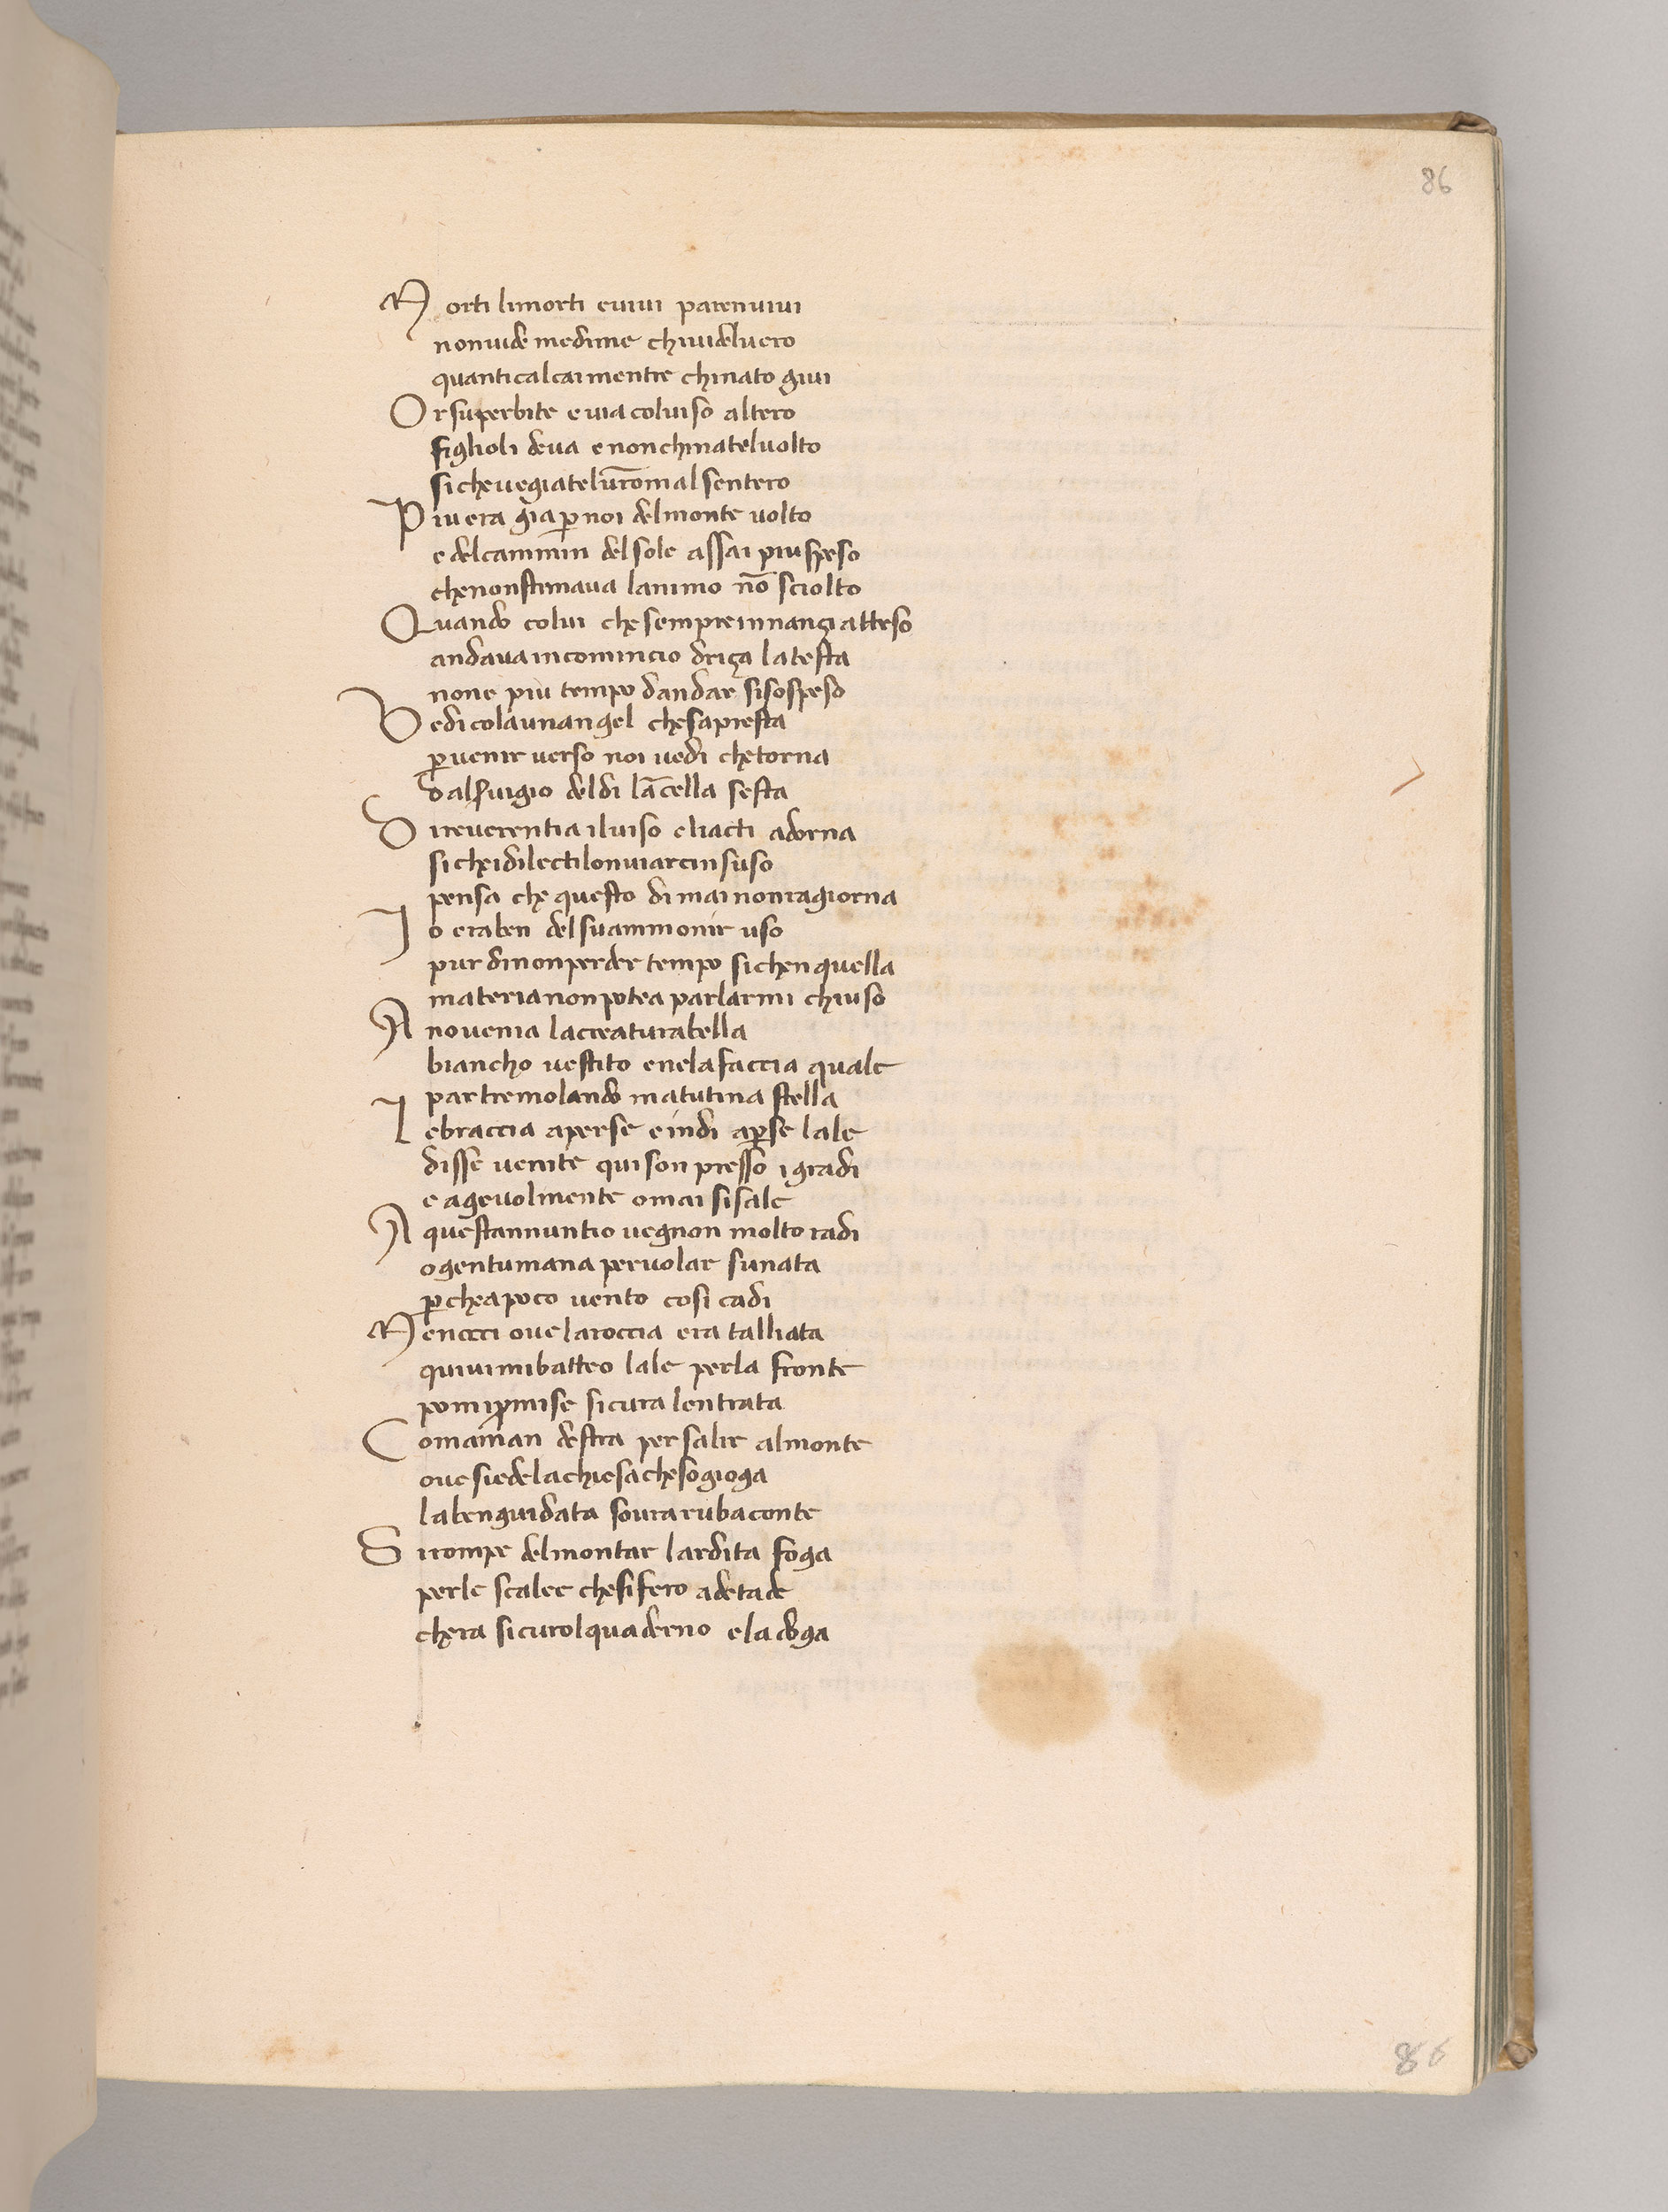 86
Morti limorti euiui parenuiui
nonuide medime chiuideluero
quanticalcaimentre chinato giui
Orsuperbite euiacoluiso altero
figlioli deua enonchinateluolto
sicheuegiatelur̄omal sentero
Piuera gia ꝑ noi delmonte uolto
edelcammin delsole assai piuspeso
chenonstimaua lanimo nō sciolto
Quando colui chesempreinnanziatteso
andauaincomincio driça latesta
none piu tempo dandar sisospeso
Vedicolaunangel chesapresta
ꝑuenir uerso noi uedi chetorna
dalseruigio deldi lācella sesta
Direuerentia iluiso eliacti adorna
sicheidilectilonuiarcinsuso
pensa che questo di mainonragiorna
Io eraben delsuammonir uso
pur dinonperder tempo sichenquella
materianonpotea parlarmi chiuso
Anouenia lacreaturabella
biancho uestito enelafaccia quale
partremolando matutina stella
Lebraccia aperse eindi aꝑse lale
disse uenite quison presso igradi
e ageuolmente omai sisale
Aquestannuntio uegnon molto radi
ogentumana peruolar sunata
ꝑcheapoco uento cosi cadi
Menocci ouelaroccia era talliata
quiuimibatteo lale perla fronte
pomiꝓmise sicura lentrata
Comaman destra persalir almonte
ouesiedelachiesachesogioga
labenguidata soura rubaconte
Sirompe delmontar lardita foga
perle scalee chesifero adetade
chera sicurolquaderno eladoga
86